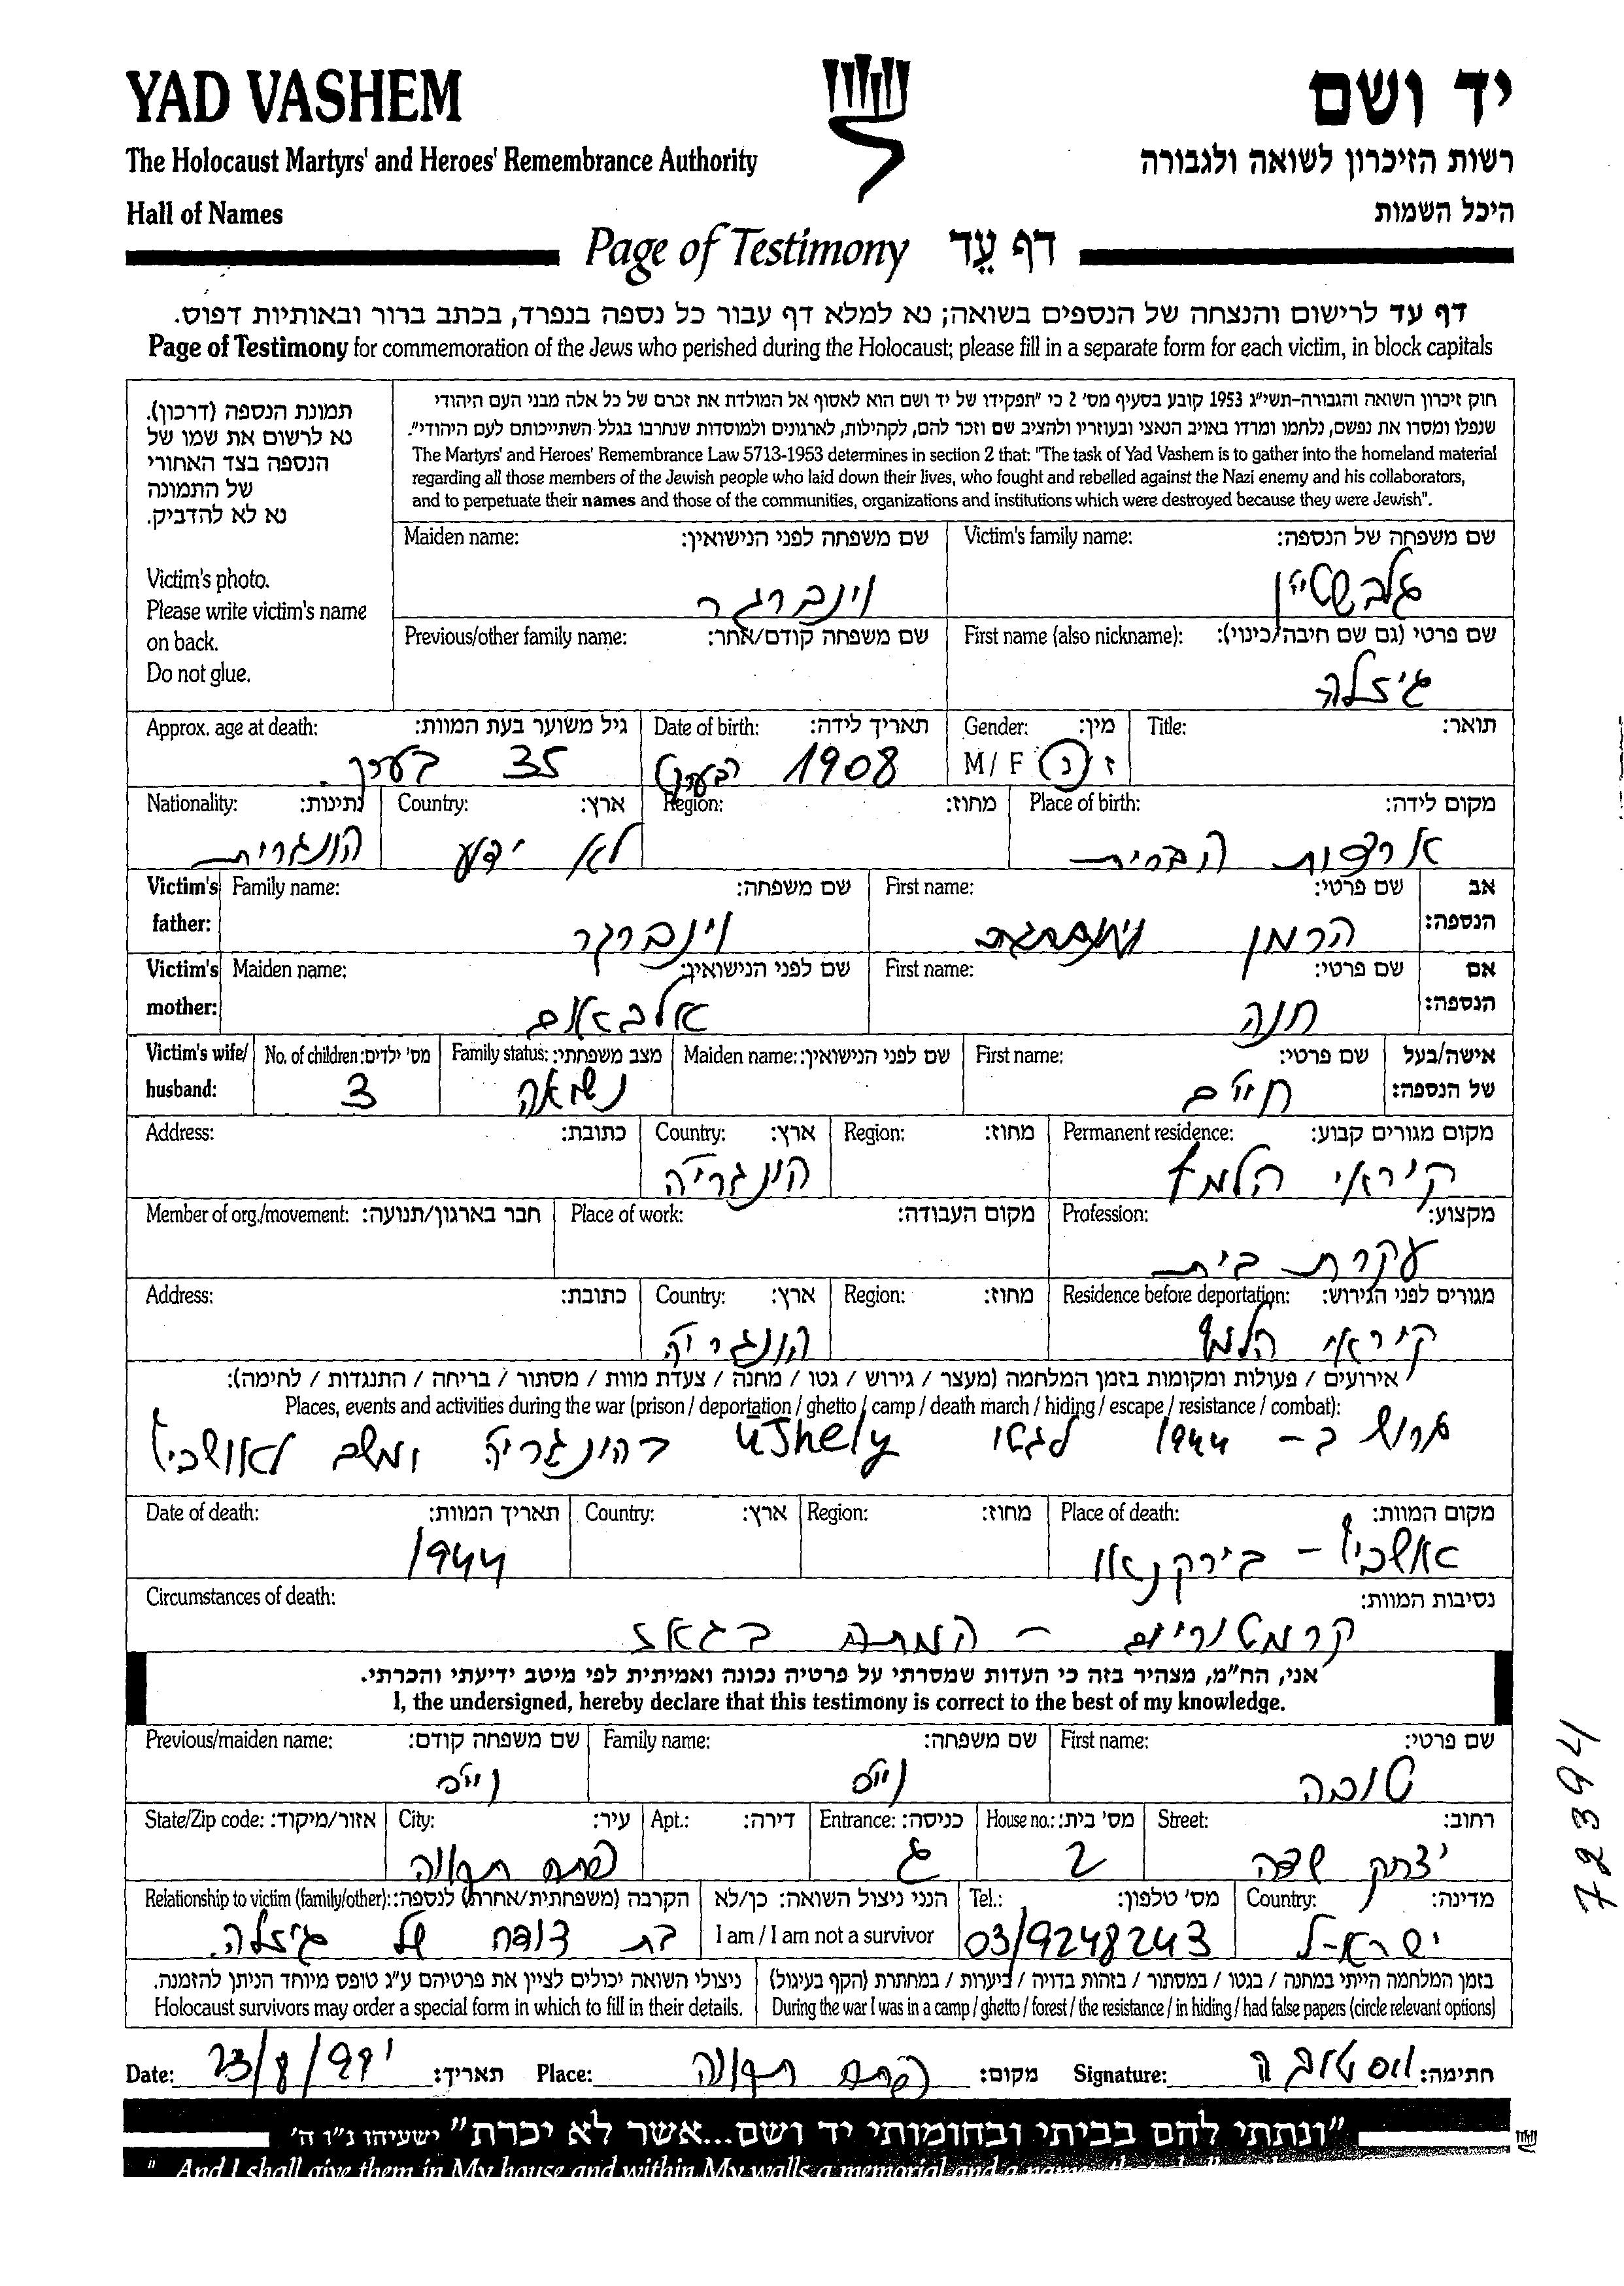 YAD VASHEM
יד ושם
The Holocaust Martyrs' and Heroes' Remembrance Authority
רשות הזיכרון לשואה ולגבורה
Hall of Names
היכל השמות
Page of Testimony דף עֵד
דף עד לרישום והנצחה של הנספים בשואה; נא למלא דף עבור כל נספה בנפרד, בכתב ברור ובאותיות דפוס.
Page of Testimony for commemoration of the Jews who perished during the Holocaust; please fill in a separate form for each victim, in block capitals
תמונת הנספה (דרכון).
נא לרשום את שמו של
הנספה בצד האחורי
של התמונה
נא לא להדביק.
Victim's photo.
Please write victim's name
on back.
Do not glue.
חוק זיכרון השואה והגבורה-תשי"ג 1953 קובע בסעיף מס' 2 כי "תפקידו של יד ושם הוא לאסוף אל המולדת את זכרם של כל אלה מבני העם היהודי
שנפלו ומסרו את נפשם, נלחמו ומרדו באויב הנאצי ובעוזריו ולהציב שם וזכר להם, לקהילות, לארגונים ולמוסדות שנחרבו בגלל השתייכותם לעם היהודי".
The Martyrs' and Heroes' Remembrance Law 5713-1953 determines in section 2 that: "The task of Yad Vashem is to gather into the homeland material
regarding all those members of the Jewish people who laid down their lives, who fought and rebelled against the Nazi enemy and his collaborators,
and to perpetuate their names and those of the communities, organizations and institutions which were destroyed because they were Jewish".
Victim's family name: שם משפחה של הנספה:
גלבשטיין
Maiden name: שם משפחה לפני הנישואין:
וינברגר
First name (also nickname): שם פרטי (גם שם חיבה/כינוי):
גיזלה
Previous/other family name: שם משפחה קודם/אחר:
Title: תואר:
Gender: מין:
M / F ז נ
Date of birth: תאריך לידה:
1908 (בערך)
Approx. age at death: גיל משוער בעת המוות:
35 בערך.
Place of birth: מקום לידה:
ארצות הברית
Region: מחוז:
Country: ארץ:
לא ידוע
Nationality: נתינות:
הונגרית
Victim's father: אב הנספה:
First name: שם פרטי:
הרמן
Family name: שם משפחה:
וינברגר
Victim's mother: אם הנספה:
First name: שם פרטי:
חנה
Maiden name: שם לפני הנישואין:
אלבאום
Victim's wife/ husband: אישה/בעל של הנספה:
First name: שם פרטי:
חיים
Maiden name: שם לפני הנישואין:
Family status: מצב משפחתי:
נשואה
No. of children: מס' ילדים:
3
Permanent residence: מקום מגורים קבוע:
קיראי הלמץ
Region: מחוז:
Country: ארץ:
הונגריה
Address: כתובת:
Profession: מקצוע:
עקרת בית
Place of work: מקום העבודה:
Member of org./movement: חבר בארגון/תנועה:
Residence before deportation: מגורים לפני הגירוש:
קיראי הלמץ
Region: מחוז:
Country: ארץ:
הונגריה
Address: כתובת:
אירועים / פעולות ומקומות בזמן המלחמה (מעצר / גירוש / גטו / מחנה / צעדת מוות / מסתור / בריחה / התנגדות / לחימה):
Places, events and activities during the war (prison / deportation / ghetto / camp / death march / hiding / escape / resistance / combat):
גרוש ב- 1944 לגטו uJhely בהונגריה ומשם לאושביץ
Place of death: מקום המוות:
אושביץ - בירקנאו
Region: מחוז:
Country: ארץ:
Date of death: תאריך המוות:
1944
Circumstances of death: נסיבות המוות:
קרמטוריום - המתה בגאז
אני, הח"מ, מצהיר בזה כי העדות שמסרתי על פרטיה נכונה ואמיתית לפי מיטב ידיעתי והכרתי.
I, the undersigned, hereby declare that this testimony is correct to the best of my knowledge.
First name: שם פרטי:
טובה
Family name: שם משפחה:
וייס
Previous/maiden name: שם משפחה קודם:
וייס
Street: רחוב:
יצחק שדה
House no.: מס' בית:
2
Entrance: כניסה:
ג
Apt.: דירה:
City: עיר:
פתח תקווה
State/Zip code: אזור/מיקוד:
Country: מדינה:
ישראל
Tel.: מס' טלפון:
03/9248243
הנני ניצול השואה: כן/לא
I am / I am not a survivor
Relationship to victim (family/other): הקרבה (משפחתית/אחרת) לנספה:
בת דודה של גיזלה.
בזמן המלחמה הייתי במחנה / בגטו / במסתור / בזהות בדויה / ביערות / במחתרת (הקף בעיגול)
During the war I was in a camp / ghetto / forest / the resistance / in hiding / had false papers (circle relevant options)
ניצולי השואה יכולים לציין את פרטיהם ע"ג טופס מיוחד הניתן להזמנה.
Holocaust survivors may order a special form in which to fill in their details.
Date: 23/8/99' תאריך: Place: פתח תקווה מקום: Signature: חתימה:
"ונתתי להם בביתי ובחומותי יד ושם...אשר לא יכרת" ישעיהו נ"ו ה'
" And I shall give them in My house and within My walls a memorial and a name
72394